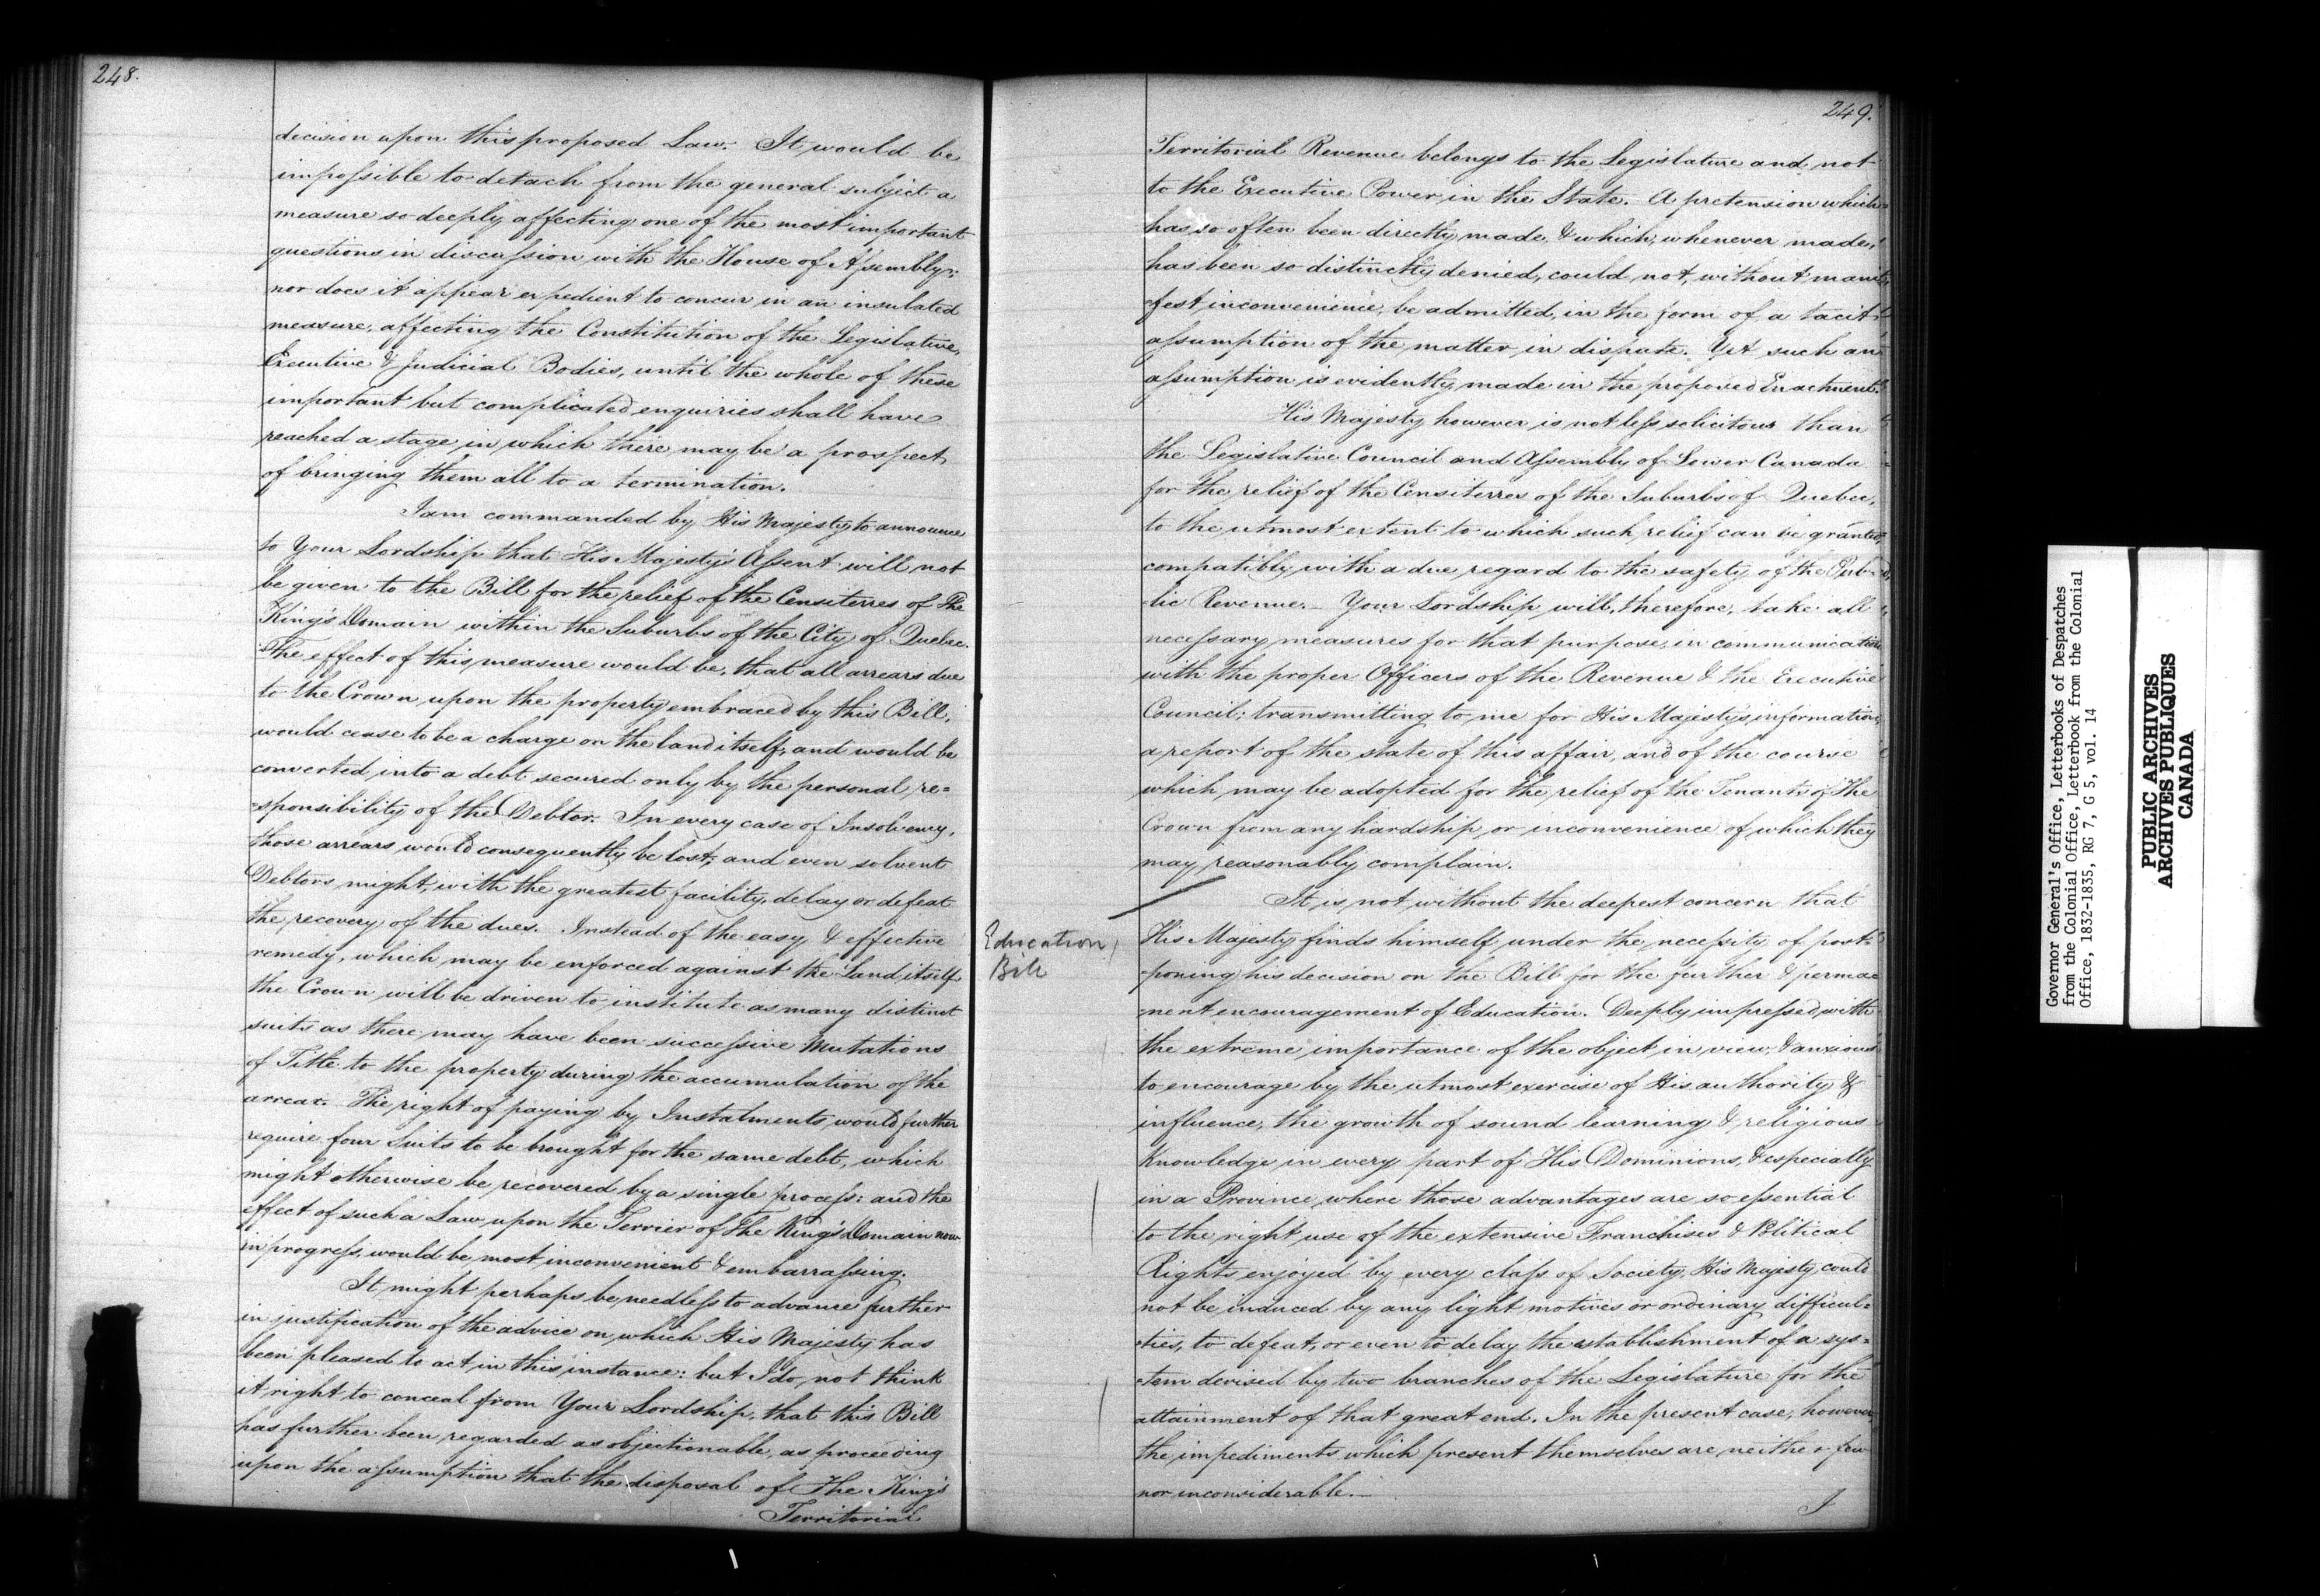 248.
decision upon this proposed Law. It would be
impossible to detach from the general subject a
measure so deeply affecting one of the most important
questions in discussion with the House of Assembly:
nor does it appear expedient to concur in an insulated
measure, affecting the Constitution of the Legislative,
Executive & Judicial Bodies, until the whole of these
important but complicated enquiries shall have
reached a stage in which there may be a prospect
of bringing them all to a termination.
I am commanded by His Majesty to announce
to Your Lordship that His Majesty's Assent will not
be given to the Bill for the relief of the Censiterres of The
King's Domain within the Suburbs of the City of Quebec.
The effect of this measure would be, that all arrears due
to the Crown upon the property embraced by this Bill,
would cease to be a charge on the land itself, and would be
converted into a debt secured only by the personal re=
=sponsibility of the Debtor. In every case of Insolvency,
those arrears would consequently be lost; and even solvent
Debtors might, with the greatest facility, delay or defeat
the recovery of the dues. Instead of the easy & effective
remedy, which may be enforced against the Land itself,
the Crown will be driven to institute as many distinct
suits as there may have been successive Mutations
of Title to the property during the accumulation of the
arrear. The right of paying by Instalments would further
require four Suits to be brought for the same debt, which
might otherwise be recovered by a single process: and the
effect of such a Law upon the Terrier of The King's Domain now
in progress, would be most inconvenient & embarrassing.
It might perhaps be needless to advance further
in justification of the advice on which His Majesty has
been pleased to act in this instance: but I do not think
it right to conceal from Your Lordship, that this Bill
has further been regarded as objectionable, as proceeding
upon the assumption that the disposal of The King's
Territorial
249.
Territorial Revenue belongs to the Legislature and not
to the Executive Power in the State. A pretension which
has so often been directly made, & which, whenever made,
has been so distinctly denied, could not, without mani=
=fest inconvenience, be admitted, in the form of a tacit
assumption of the matter in dispute. Yet such an
assumption is evidently made in the proposed Enactment.
His Majesty however is not less solicitous than
the Legislative Council and Assembly of Lower Canada
for the relief of the Censiterres of the Suburbs of Quebec,
to the utmost extent to which such relief can be granted,
compatibly with a due regard to the safety of the Pub=
=lic Revenue. Your Lordship will, therefore, take all
necessary measures for that purpose, in communication
with the proper Officers of the Revenue & the Executive
Council; transmitting to me for His Majesty's information,
a report of the state of this affair, and of the course
which may be adopted for the relief of the Tenants of The
Crown from any hardship or inconvenience of which they
may reasonably complain.
It is not without the deepest concern that
Education
Bill
His Majesty finds himself under the necessity of post=
=poning his decision on the Bill for the further & perma=
=nent encouragement of Education. Deeply impressed with
the extreme importance of the object in view, & anxious
to encourage by the utmost exercise of His authority &
influence, the growth of sound learning & religious
Knowledge in every part of His Dominions, & especially
in a Province where those advantages are so essential
to the right use of the extensive Franchises & Political
Rights enjoyed by every class of Society, His Majesty could
not be induced by any light motives or ordinary difficul=
=ties, to defeat, or even to delay the establishment of a sys=
=tem devised by two branches of the Legislature for the
attainment of that great end. In the present case, however
the impediments which present themselves are neither few
nor inconsiderable.
I
Governor General's Office, Letterbooks of Despatches
from the Colonial Office, Letterbook from the Colonial
Office, 1832-1835, RG 7, G 5, vol. 14
PUBLIC ARCHIVES
ARCHIVES PUBLIQUES
CANADA